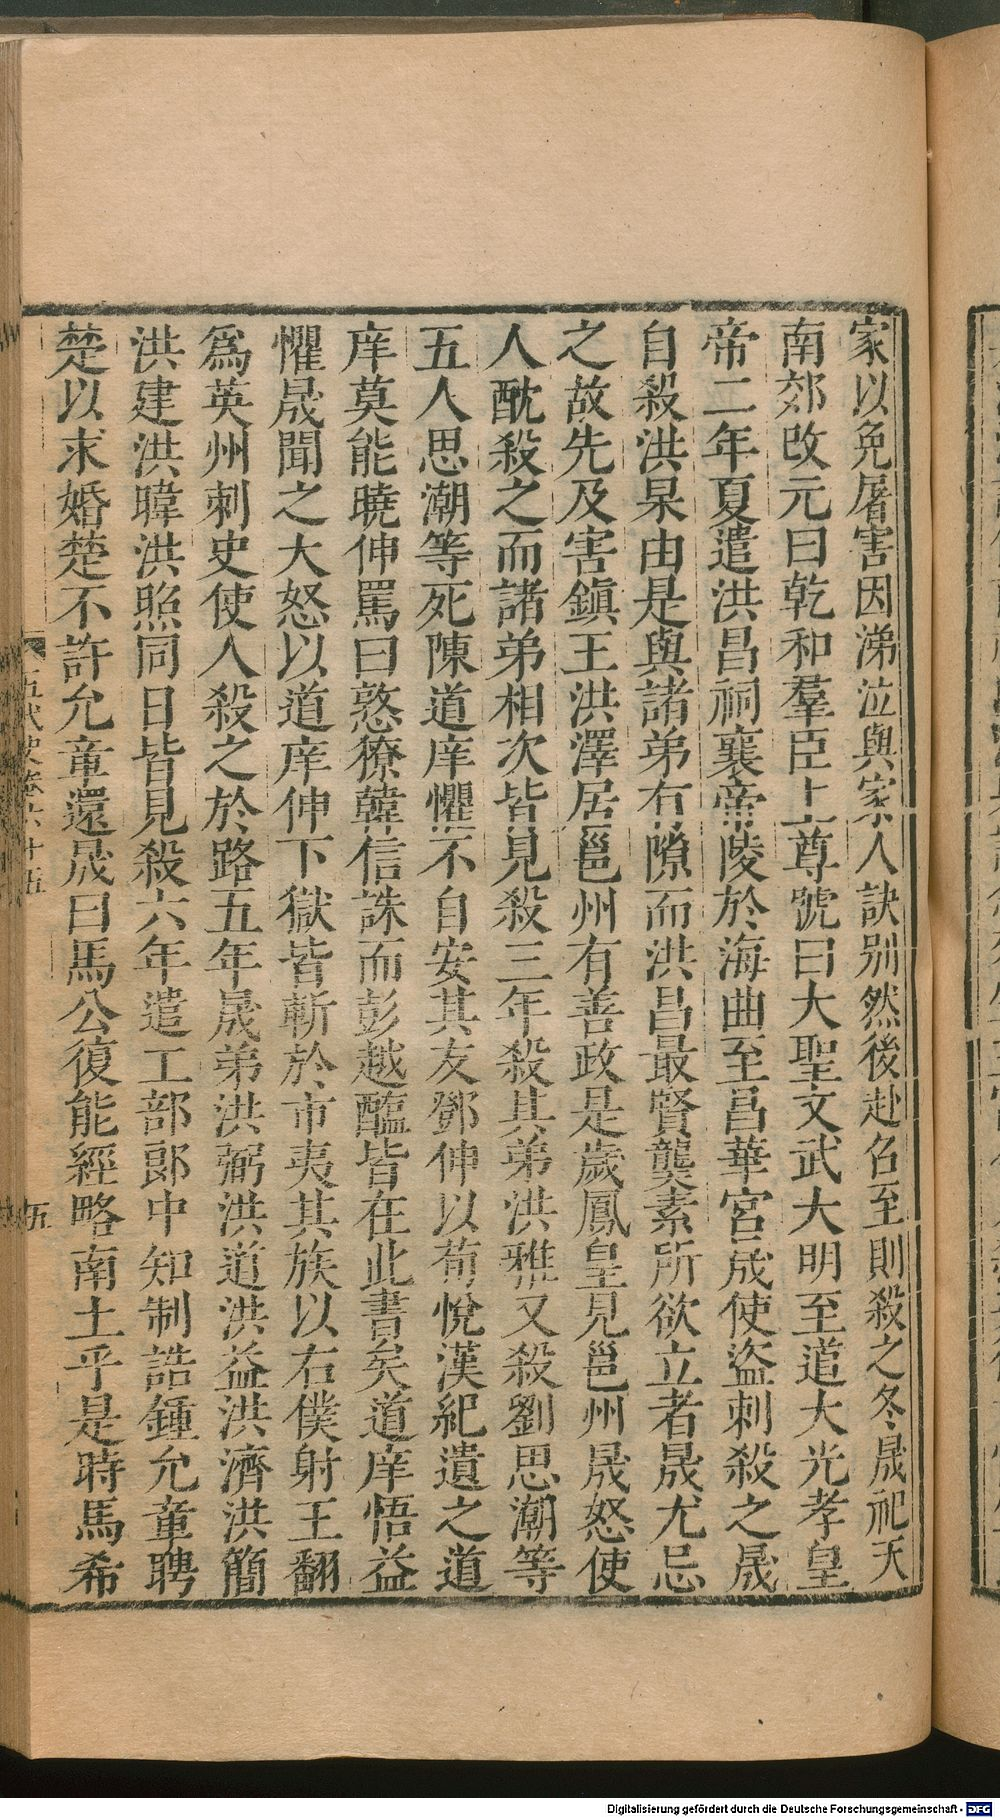 家以免屠害因涕泣與家人訣别然後赴召至則殺之冬晟祀天
南郊改元曰乾和羣臣上尊號曰大聖文武大明至道大光孝皇
帝二年夏遣洪昌祠襄帝陵於海曲至昌華宫晟使盜刺殺之晟
自殺洪杲由是與諸弟有隙而洪昌最賢龑素所欲立者晟尤忌
之故先及害鎮王洪澤居邕州有善政是歲鳳皇見邕州晟怒使
人酖殺之而諸弟相次皆見殺三年殺其弟洪雅又殺劉思潮等
五人思潮等死陳道庠懼不自安其友鄧伸以荀悅漢紀遺之道
庠莫能曉伸罵曰憝獠韓信誅而彭越醢皆在此書矣道庠悟益
懼晟聞之大怒以道庠伸下獄皆斬於市夷其族以右僕射王翻
爲英州刺史使人殺之於路五年晟弟洪弼洪道洪益洪濟洪簡
洪建洪暐洪照同日皆見殺六年遣工部郎中知制誥鍾允章聘
楚以求婚楚不許允章還晟曰馬公復能經略南土乎是時馬希
五代史卷六十五
五
Digitalisierung gefördert durch die Deutsche Forschungsgemeinschaft - DFG